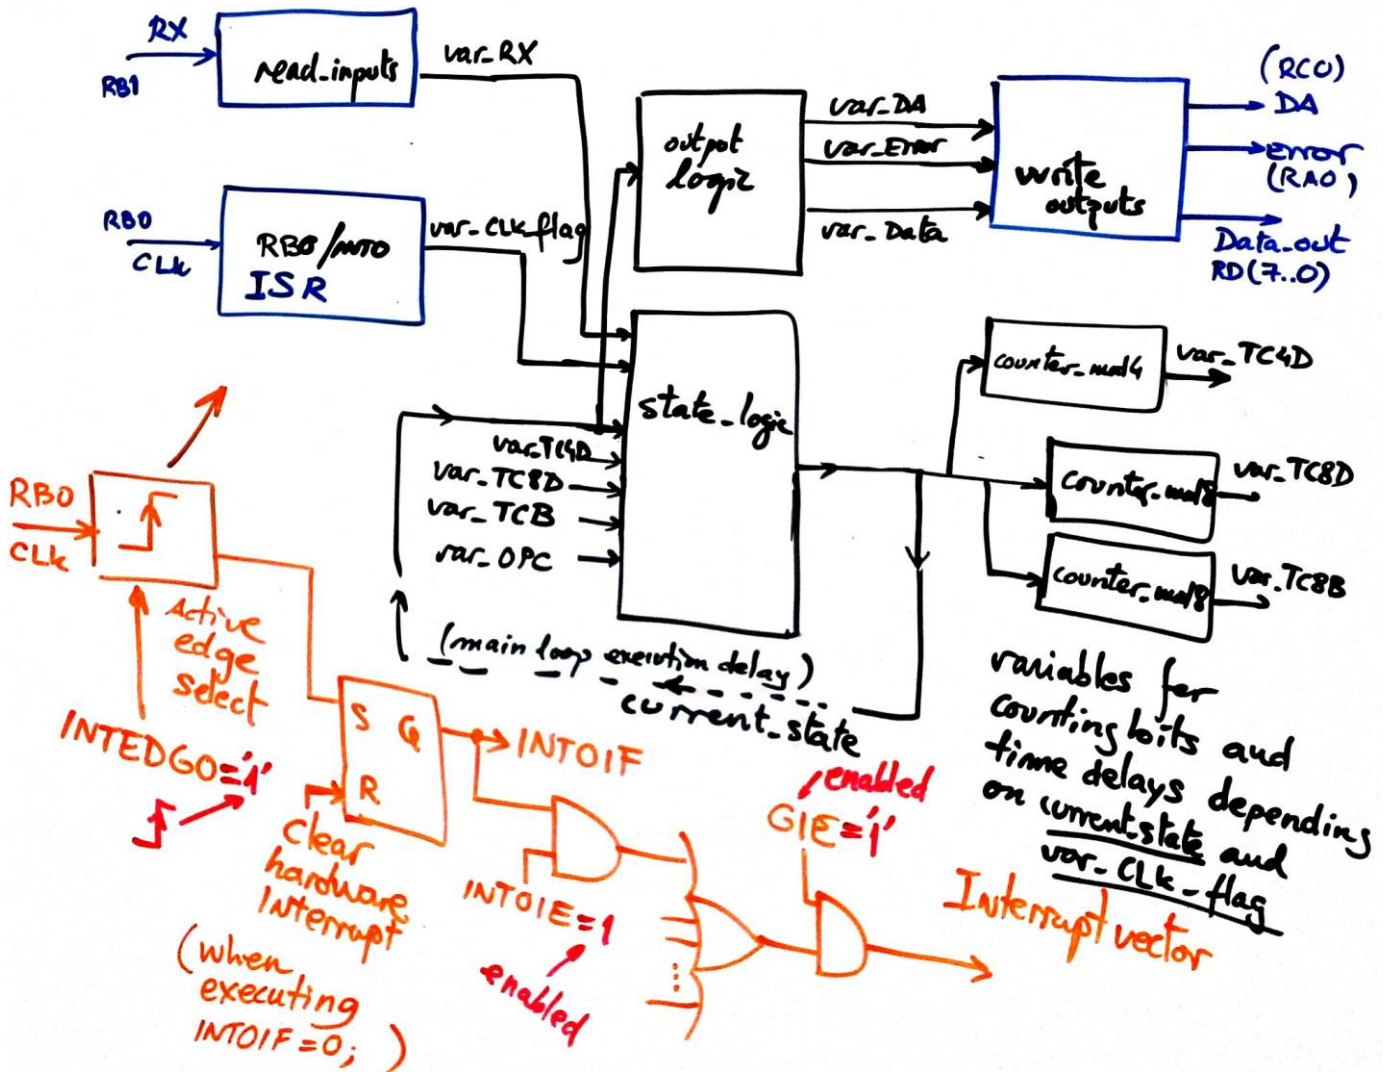 RX
RB1
read_inputs
var_RX
RB0
CLK
RB0/INT0
ISR
var_CLK_flag
output
logic
var_DA
var_Error
var_Data
write
outputs
(RC0)
DA
Error
(RA0)
Data_out
RD(7..0)
state_logic
var_TC4D
var_TC8D
var_TCB
var_OPC
counter_mod4
var_TC4D
counter_mod8
var_TC8D
counter_mod8
var_TC8B
(main loop execution delay)
current_state
variables for
counting bits and
time delays depending
on current_state and
var_CLK_flag
RB0
CLK
Active
edge
select
INTEDG0='1'
S Q
R
INT0IF
Clear
hardware
Interrupt
(when
executing
INT0IF=0; )
INT0IE=1
enabled
enabled
GIE='1'
Interrupt vector